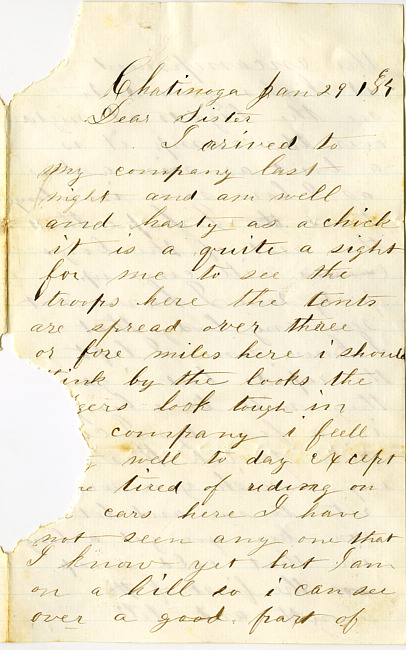 Chatinoga Jan 29 1864
Dear Sister
I arived to
my company last
night and am well
and harty as a chick
it is a quite a sight
for me to see the
troops here the tents
are spread over three
or fore miles here i should
think by the looks the
gers look tough in
company i feell
well to day except
tired of rideing on
cars here I have
not seen any one that
I know yet but I am
on a hill so i can see
over a good part of